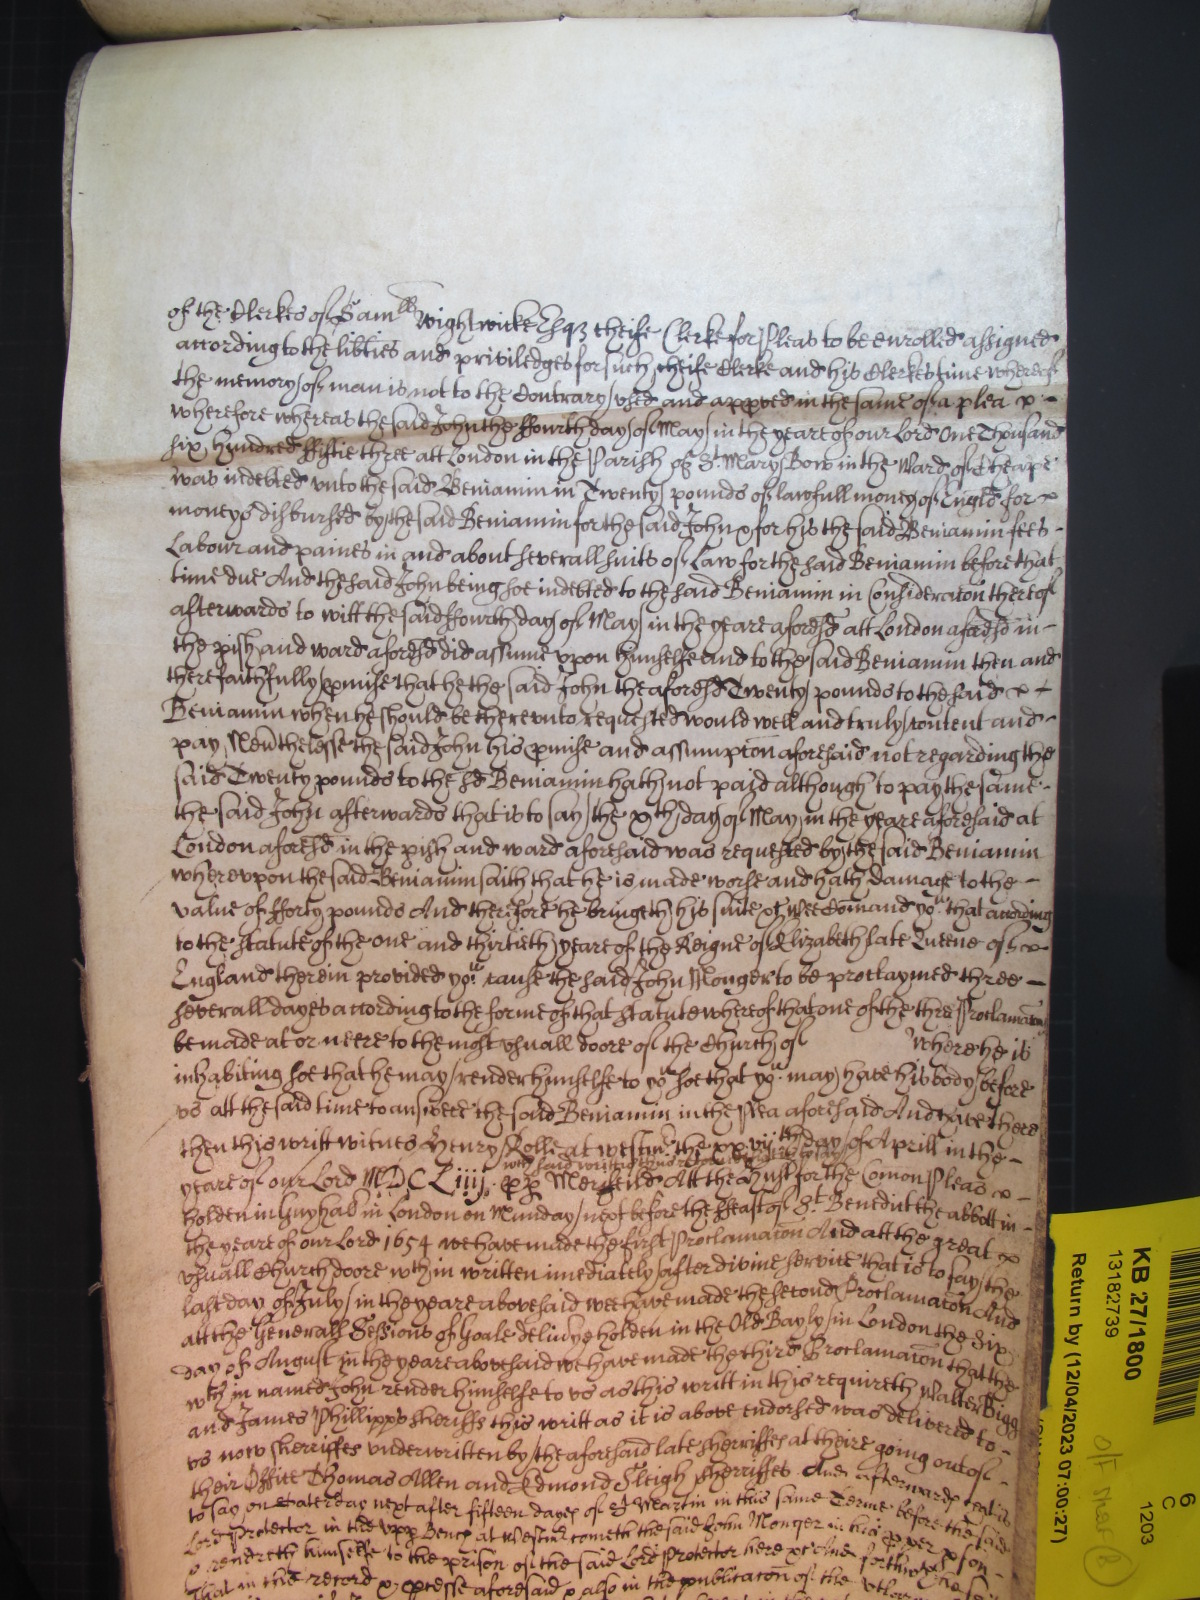 of the Clerkes of Sam:ll Wightwicke Esqz cheife Clerke for Pleas to be enrolled assigned
according to the libties and priviledges for such cheife Clerke and his Clerkes time whereof
the memory of man is not to the Contrary used and appved in the same of a plea x -
wherefore whereas the said John the ffourth day of May in the yeare of our Lord One Thousand
six hundred fiftie three att London in the Parish of St Mary Bow in the Ward of Cheape
was indebted unto the said Beniamin in Twenty pounds of lawfull money of Engld for x
moneys disbursed by the said Beniamin for the said John x for his the said Beniamin fees -
Labour and paines in and about severall suits of Law for the said Beniamin before that
time due And the said John being soe indebted to the said Beniamin in Consideracon thereof
afterwards to witt the said ffourth day of May in the yeare aforesd att London aforesd in -
the pish and ward aforesd did assume upon himselfe and to the said Beniamin then and
there faithfully pmise that he the said John the aforesd Twenty pounds to the said x -
Beniamin when he should be thereunto requested would well and truly content and -
pay Neuthelesse the said John his pmise and assumpcon aforesaid not regarding the
said Twenty pounds to the sd Beniamin hath not paid although to pay the same -
the said John afterwards that is to say the xth day of May in the yeare aforesaid at
London aforesd in the pish and ward aforesaid was requested by the said Beniamin
whereupon the said Beniamin saith that he is made worse and hath damage to the -
value of fforty pounds And therefore he bringeth his suite &c Wee Comand you that according
to the statute of the one and thirtieth yeare of the Reigne of Elizabeth late Queene of x
England therein provided you cause the said John Monger to be proclaymed three -
severall dayes according to the forme of that statute whereof that one of the three Proclamacons
be made at or neere to the most usuall doore of the Church of where he is
inhabiting soe that he may render himselfe to you soe that you may have his body before
us att the said time to answere the said Beniamin in the Plea aforesaid And have there
then this writt witnes Henry Rolle at Westmr the xxviith day of Aprill in the -
wch said writt
yeare of our Lord MDCLiiij. Merifeild Att the Hust for the Comon Pleas x -
holden in Guyhald in London on Munday next before the ffeast of St Benedict the abbott in -
the yeare of our Lord 1654 we have made the first Proclamacon And att the great x
usuall Church doore wthin written imediately after divine service that is to say the
last day of July in the yeare abovesaid wee have made the second Proclamacon And
att the Generall Sessions of Goale delivye holden in the Old Bayly in London the Six
day of August in the yeare abovesaid we have made the third Proclamacon that the
wthin named John render himselfe to us as this writt in this requireth Walter Bigg
and James Phillipps sheriffs this writt as it is above endorsed was deliverd to -
us now sherriffes underwritten by the aforesaid late sherriffes at theire going out of -
their Office Thomas Allen and Edmond Sleigh sherriffes. And afterwards that is
to say on Saterday next after fifteen dayes of St Martin in this same Terme before the said
Lord Protector in the upp Bench at Westmr cometh the said John Monger in his pper pson -
& rendreth himselfe to the prison of the said Lord Protector here
That in the record & pcesse aforesaid & also in the publicacon of the utlawry
KB 27/1800
13182739
Return by (12/04/2023 07:00:27)
6
C
1203